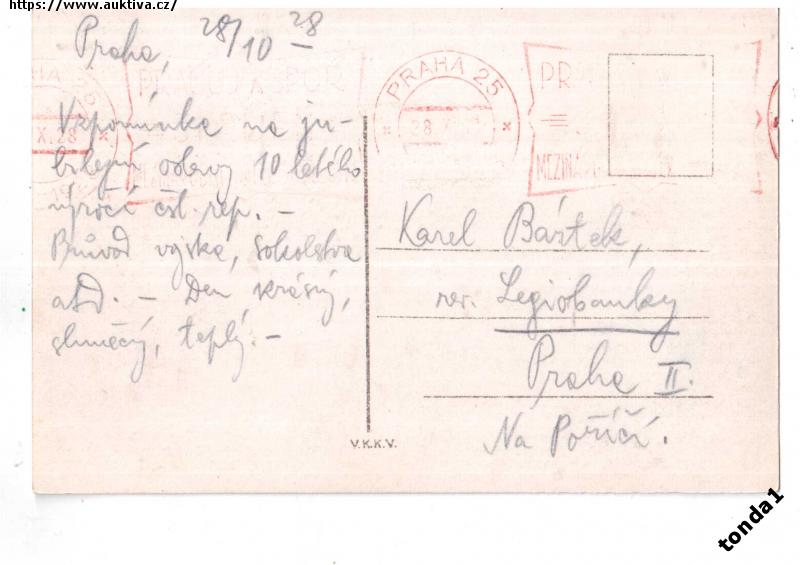 https://www.auktiva.cz/
Praha, 28/10 – 28
Vzpomínka na ju-
bilejní oslavy 10 letého
výročí čsl. rep. –
Průvod vojska, sokolstva
atd. – Den krásný,
slunečný, teplý. –
PRAHA 25
28
PR
MEZINÁ
X.28
Karel Bártek,
rev. Legiobanky
Praha II.
Na Poříčí.
V.K.K.V.
tonda1